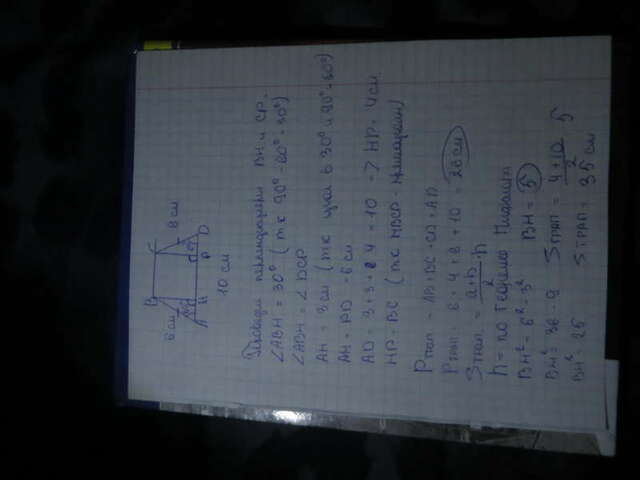 B C
6 см 8 см
A H P D
10 см
Проводим перпендикуляры BH и CP.
∠ABH = 30° (т к 90° - 60° = 30°)
∠ABH = ∠DCP
AH = 3 см (т к угол в 30° и 90° - 60°)
AH = PD = 6 см
AD = 3 + 3 + 4 = 10 => HP = 4 см
HP = BC (т к HBCP
Pтрап = AB + BC + CD + AD
Pтрап = 6 + 4 + 8 + 10 = 28 см
Sтрап = a+b/2 · h
h = по теореме Пифагора
BH² = 6² - 3² BH = 5
BH² = 36 - 9 Sтрап = 4+10/2 5
BH² = 25 Sтрап = 35 см